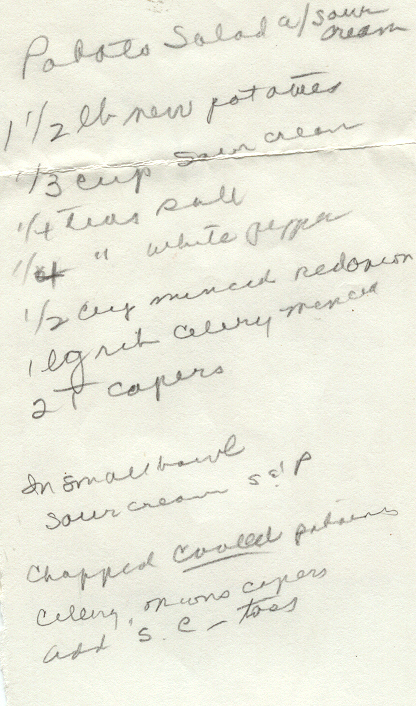 Potato Salad w/ sour
cream
1 1/2 lb new potatoes
1/3 cup sour cream
1/4 teas salt
1/4 " white pepper
1/2 cup minced red onion
1 lg rib celery minced
2 T capers
In small bowl
sour cream s & P
Chopped cooled potatoes
celery, onions capers
add S. C - toss